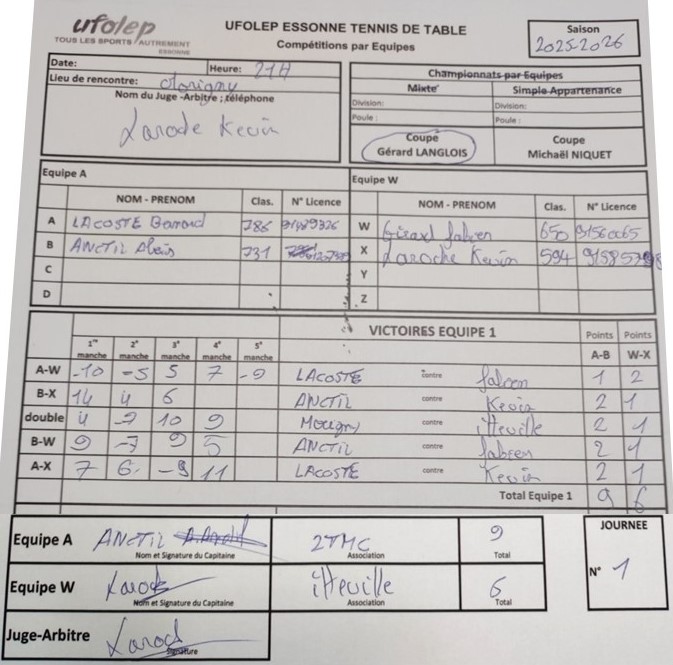 ufolep
TOUS LES SPORTS / AUTREMENT
ESSONNE
UFOLEP ESSONNE TENNIS DE TABLE
Compétitions par Equipes
Saison
2025-2026
Date:
Heure: 21H
Lieu de rencontre:
Nom du Juge -Arbitre ; téléphone
Larode Kevin
Championnats par Equipes
Mixte
Simple Appartenance
Division:
Division:
Poule :
Poule :
Coupe
Gérard LANGLOIS
Coupe
Michaël NIQUET
Equipe A
NOM - PRENOM Clas. N° Licence
A LACOSTE 786
B ANCTIL Alexis 731
C
D
Equipe W
NOM - PRENOM Clas. N° Licence
W Girard fabien 650 9156065
X Laroche Kevin 594
Y
Z
VICTOIRES EQUIPE 1
1re manche 2e manche 3e manche 4e manche 5e manche
Points A-B
Points W-X
A-W -10 -5 5 7 -9 LACOSTE contre fabien 1 2
B-X 14 4 6 ANCTIL contre Kevin 2 1
double 4 -7 10 9 contre itteville 2 1
B-W 9 -7 9 5 ANCTIL contre fabien 2 1
A-X 7 6 -9 11 LACOSTE contre Kevin 2 1
Total Equipe 1 9 6
Equipe A ANCTIL
Nom et Signature du Capitaine
2TMC
Association
9
Total
Equipe W Larode
Nom et Signature du Capitaine
itteville
Association
6
Total
Juge-Arbitre Larode
Signature
JOURNEE
N° 1